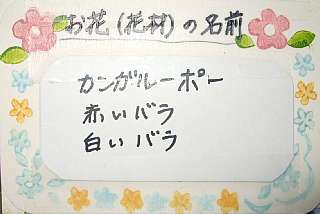 お花(花材)の名前
カンガルーポー
赤いバラ
白いバラ